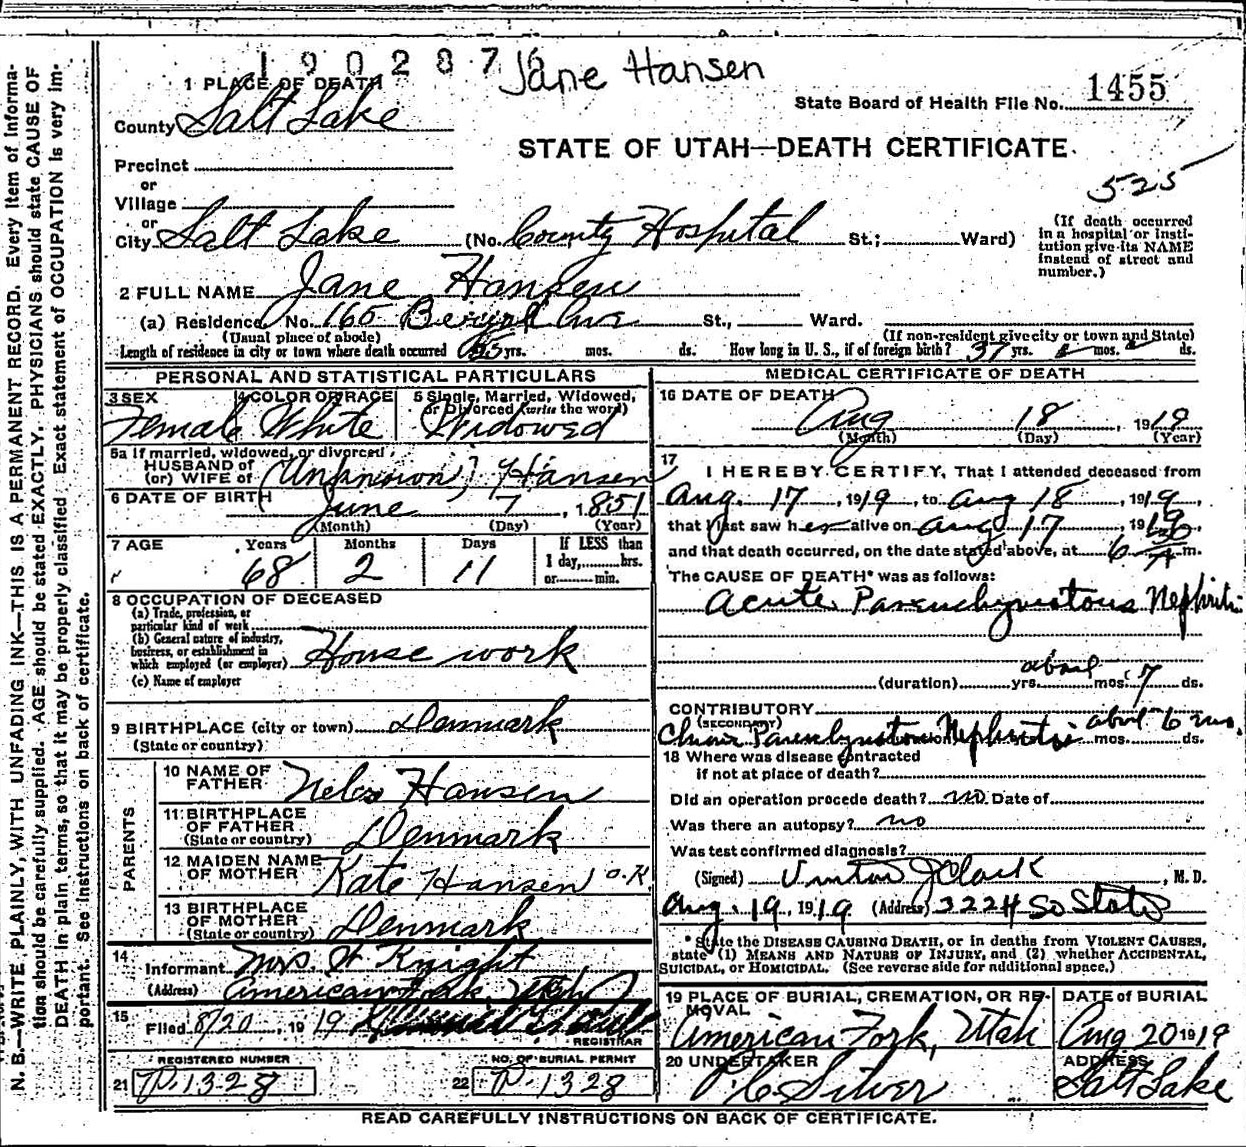 190287
Jane Hansen
1 PLACE OF DEATH
State Board of Health File No. 1455
County Salt Lake
STATE OF UTAH—DEATH CERTIFICATE.
Precinct
or
Village
525
or
City Salt Lake (No. County Hospital St.; Ward)
(If death occurred
in a hospital or insti-
tution give its NAME
instead of street and
number.)
2 FULL NAME Jane Hansen
(a) Residence No. 165 Ave St., Ward.
(Usual place of abode) (If non-resident give city or town and State)
Length of residence in city or town where death occurred yrs. mos. ds. How long in U. S., if of foreign birth? 37 yrs. mos. ds.
PERSONAL AND STATISTICAL PARTICULARS
3 SEX
Female
4 COLOR OR RACE
White
5 Single, Married, Widowed,
or Divorced (write the word)
Widowed
5a If married, widowed, or divorced
HUSBAND of
(or) WIFE of (Unknown) Hansen
6 DATE OF BIRTH June 7, 1851
(Month) (Day) (Year)
7 AGE Years Months Days If LESS than
1 day, hrs.
or min.
68 2 11
8 OCCUPATION OF DECEASED
(a) Trade, profession, or
particular kind of work
(b) General nature of industry,
business, or establishment in
which employed (or employer) House work
(c) Name of employer
9 BIRTHPLACE (city or town) Denmark
(State or country)
PARENTS
10 NAME OF
FATHER Nels Hansen
11 BIRTHPLACE
OF FATHER
(State or country) Denmark
12 MAIDEN NAME
OF MOTHER Kate Hansen O.K.
13 BIRTHPLACE
OF MOTHER
(State or country) Denmark
14
Informant Mrs. Knight
(Address) American Fork, Utah
15
Filed 8/20, 1919
REGISTRAR
REGISTERED NUMBER
21 P.1328
NO. OF BURIAL PERMIT
22 P.1328
MEDICAL CERTIFICATE OF DEATH
16 DATE OF DEATH
Aug 18, 1919
(Month) (Day) (Year)
17
I HEREBY CERTIFY, That I attended deceased from
Aug. 17, 1919, to Aug 18, 1919,
that I last saw her alive on Aug 17, 1919
and that death occurred, on the date stated above, at 6 A m.
The CAUSE OF DEATH* was as follows:
Acute Parenchymatous Nephritis
about
(duration) yrs. mos. 7 ds.
CONTRIBUTORY
(SECONDARY)
Chronic Parenchymatous Nephritis about 6 mo.
mos. ds.
18 Where was disease contracted
if not at place of death?
Did an operation precede death? no Date of
Was there an autopsy? no
Was test confirmed diagnosis?
(Signed) Clark, M. D.
Aug. 19, 1919 (Address) 3224 So State
* State the DISEASE CAUSING DEATH, or in deaths from VIOLENT CAUSES,
state (1) MEANS AND NATURE OF INJURY, and (2) whether ACCIDENTAL,
SUICIDAL, or HOMICIDAL. (See reverse side for additional space.)
19 PLACE OF BURIAL, CREMATION, OR RE-
MOVAL
American Fork, Utah
DATE of BURIAL
Aug 20 1919
20 UNDERTAKER
Silver
ADDRESS
Salt Lake
READ CAREFULLY INSTRUCTIONS ON BACK OF CERTIFICATE.
N. B.—WRITE PLAINLY, WITH UNFADING INK—THIS IS A PERMANENT RECORD. Every item of informa-
tion should be carefully supplied. AGE should be stated EXACTLY. PHYSICIANS should state CAUSE OF
DEATH in plain terms, so that it may be properly classified. Exact statement of OCCUPATION is very im-
portant. See instructions on back of certificate.